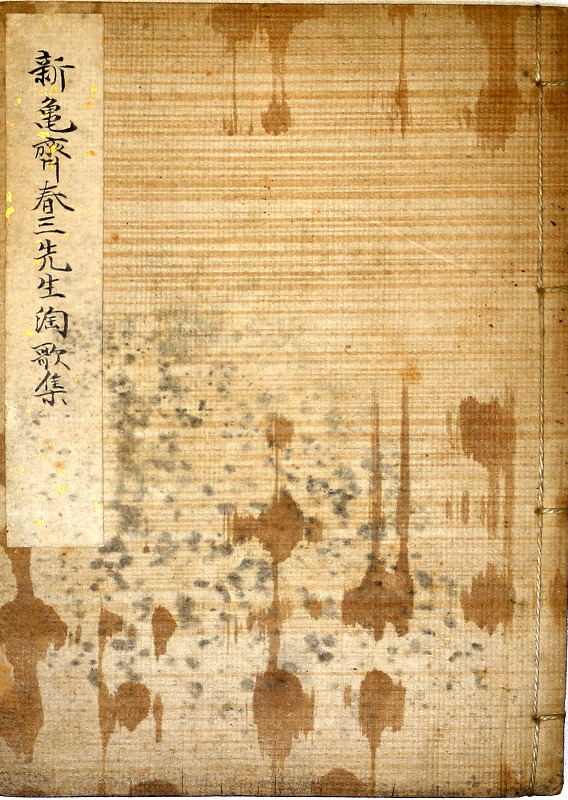 新亀齊春三先生淘歌集